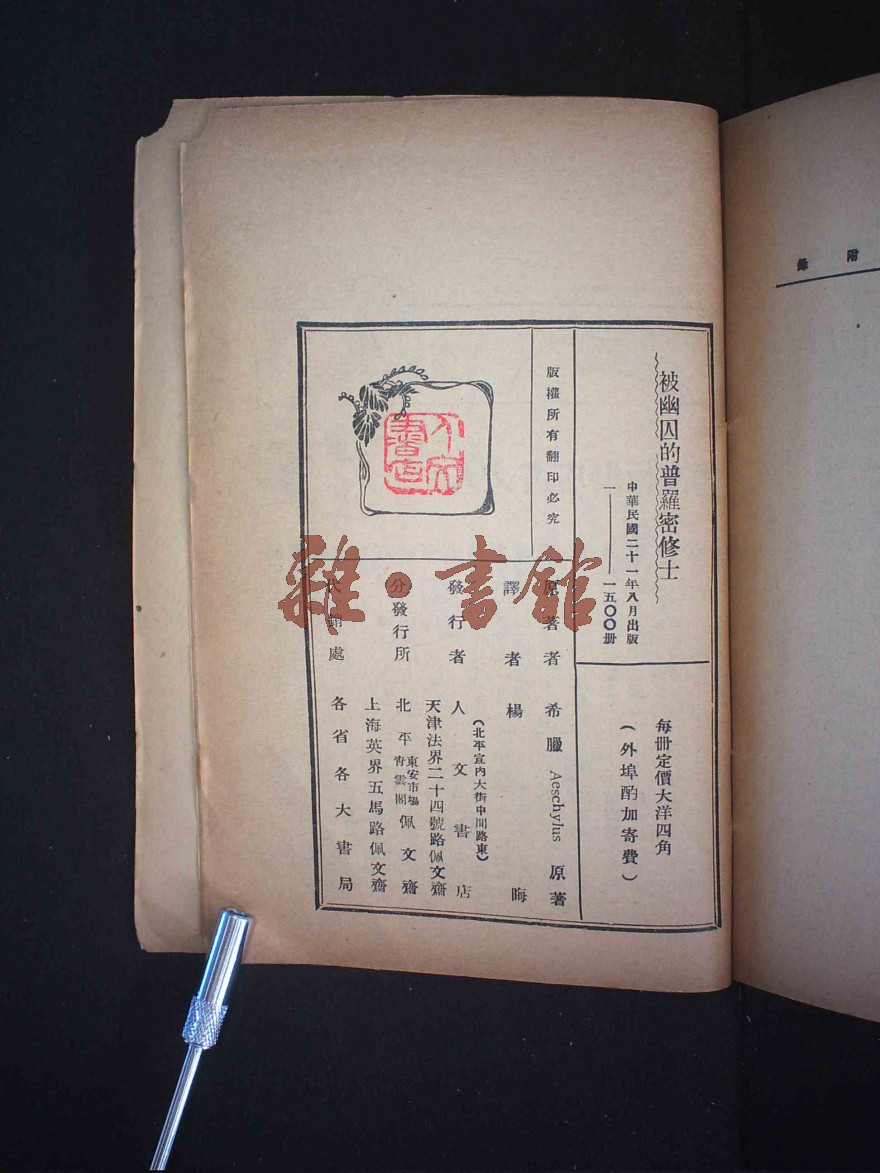 附錄
被幽囚的普羅密修士
中華民國二十一年八月出版
一——一五〇〇册
每冊定價大洋四角
（外埠酌加寄費）
版權所有翻印必究
人文書店
原著者 希臘 Aeschylus 原著
譯者 楊晦
發行者 人文書店
（北平宣内大街中間路東）
分發行所 天津法界二十四號路佩文齋
北平 東安市場 青雲閣 佩文齋
上海英界五馬路佩文齋
代銷處 各省各大書局
雜·書館